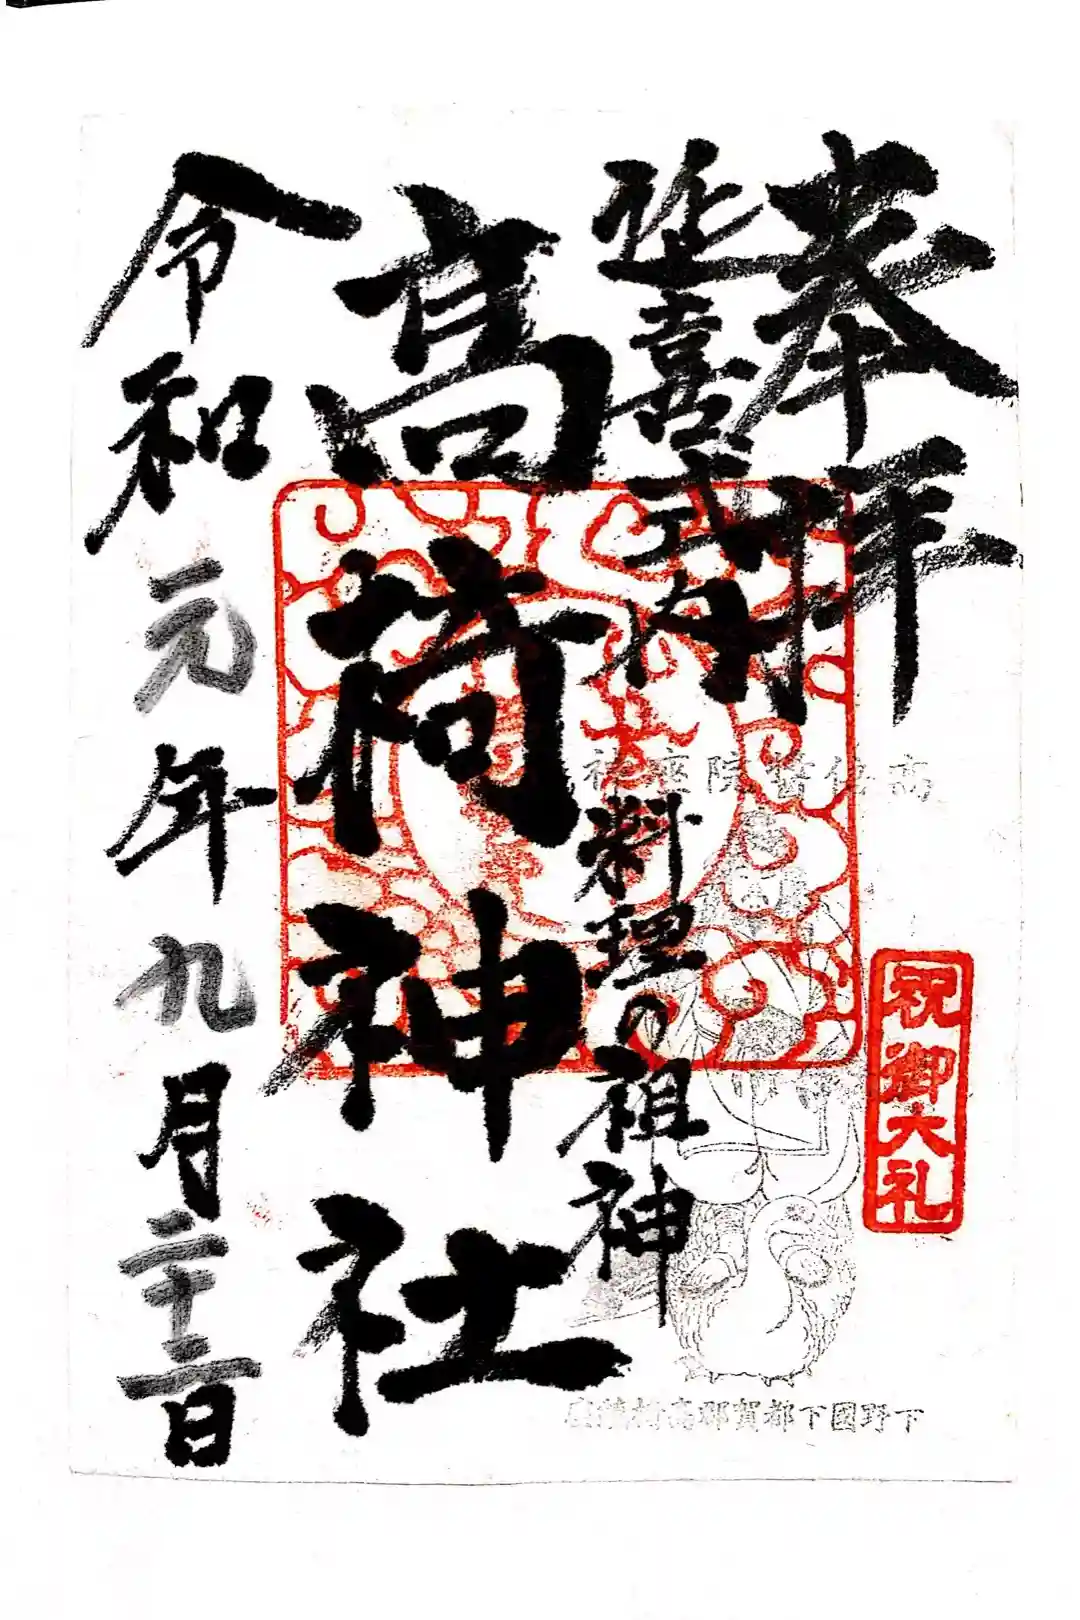 奉拝
延喜式内
料理の祖神
高椅神社
令和元年九月二十三日
祝御大礼
下野國下都賀郡高椅鎮座